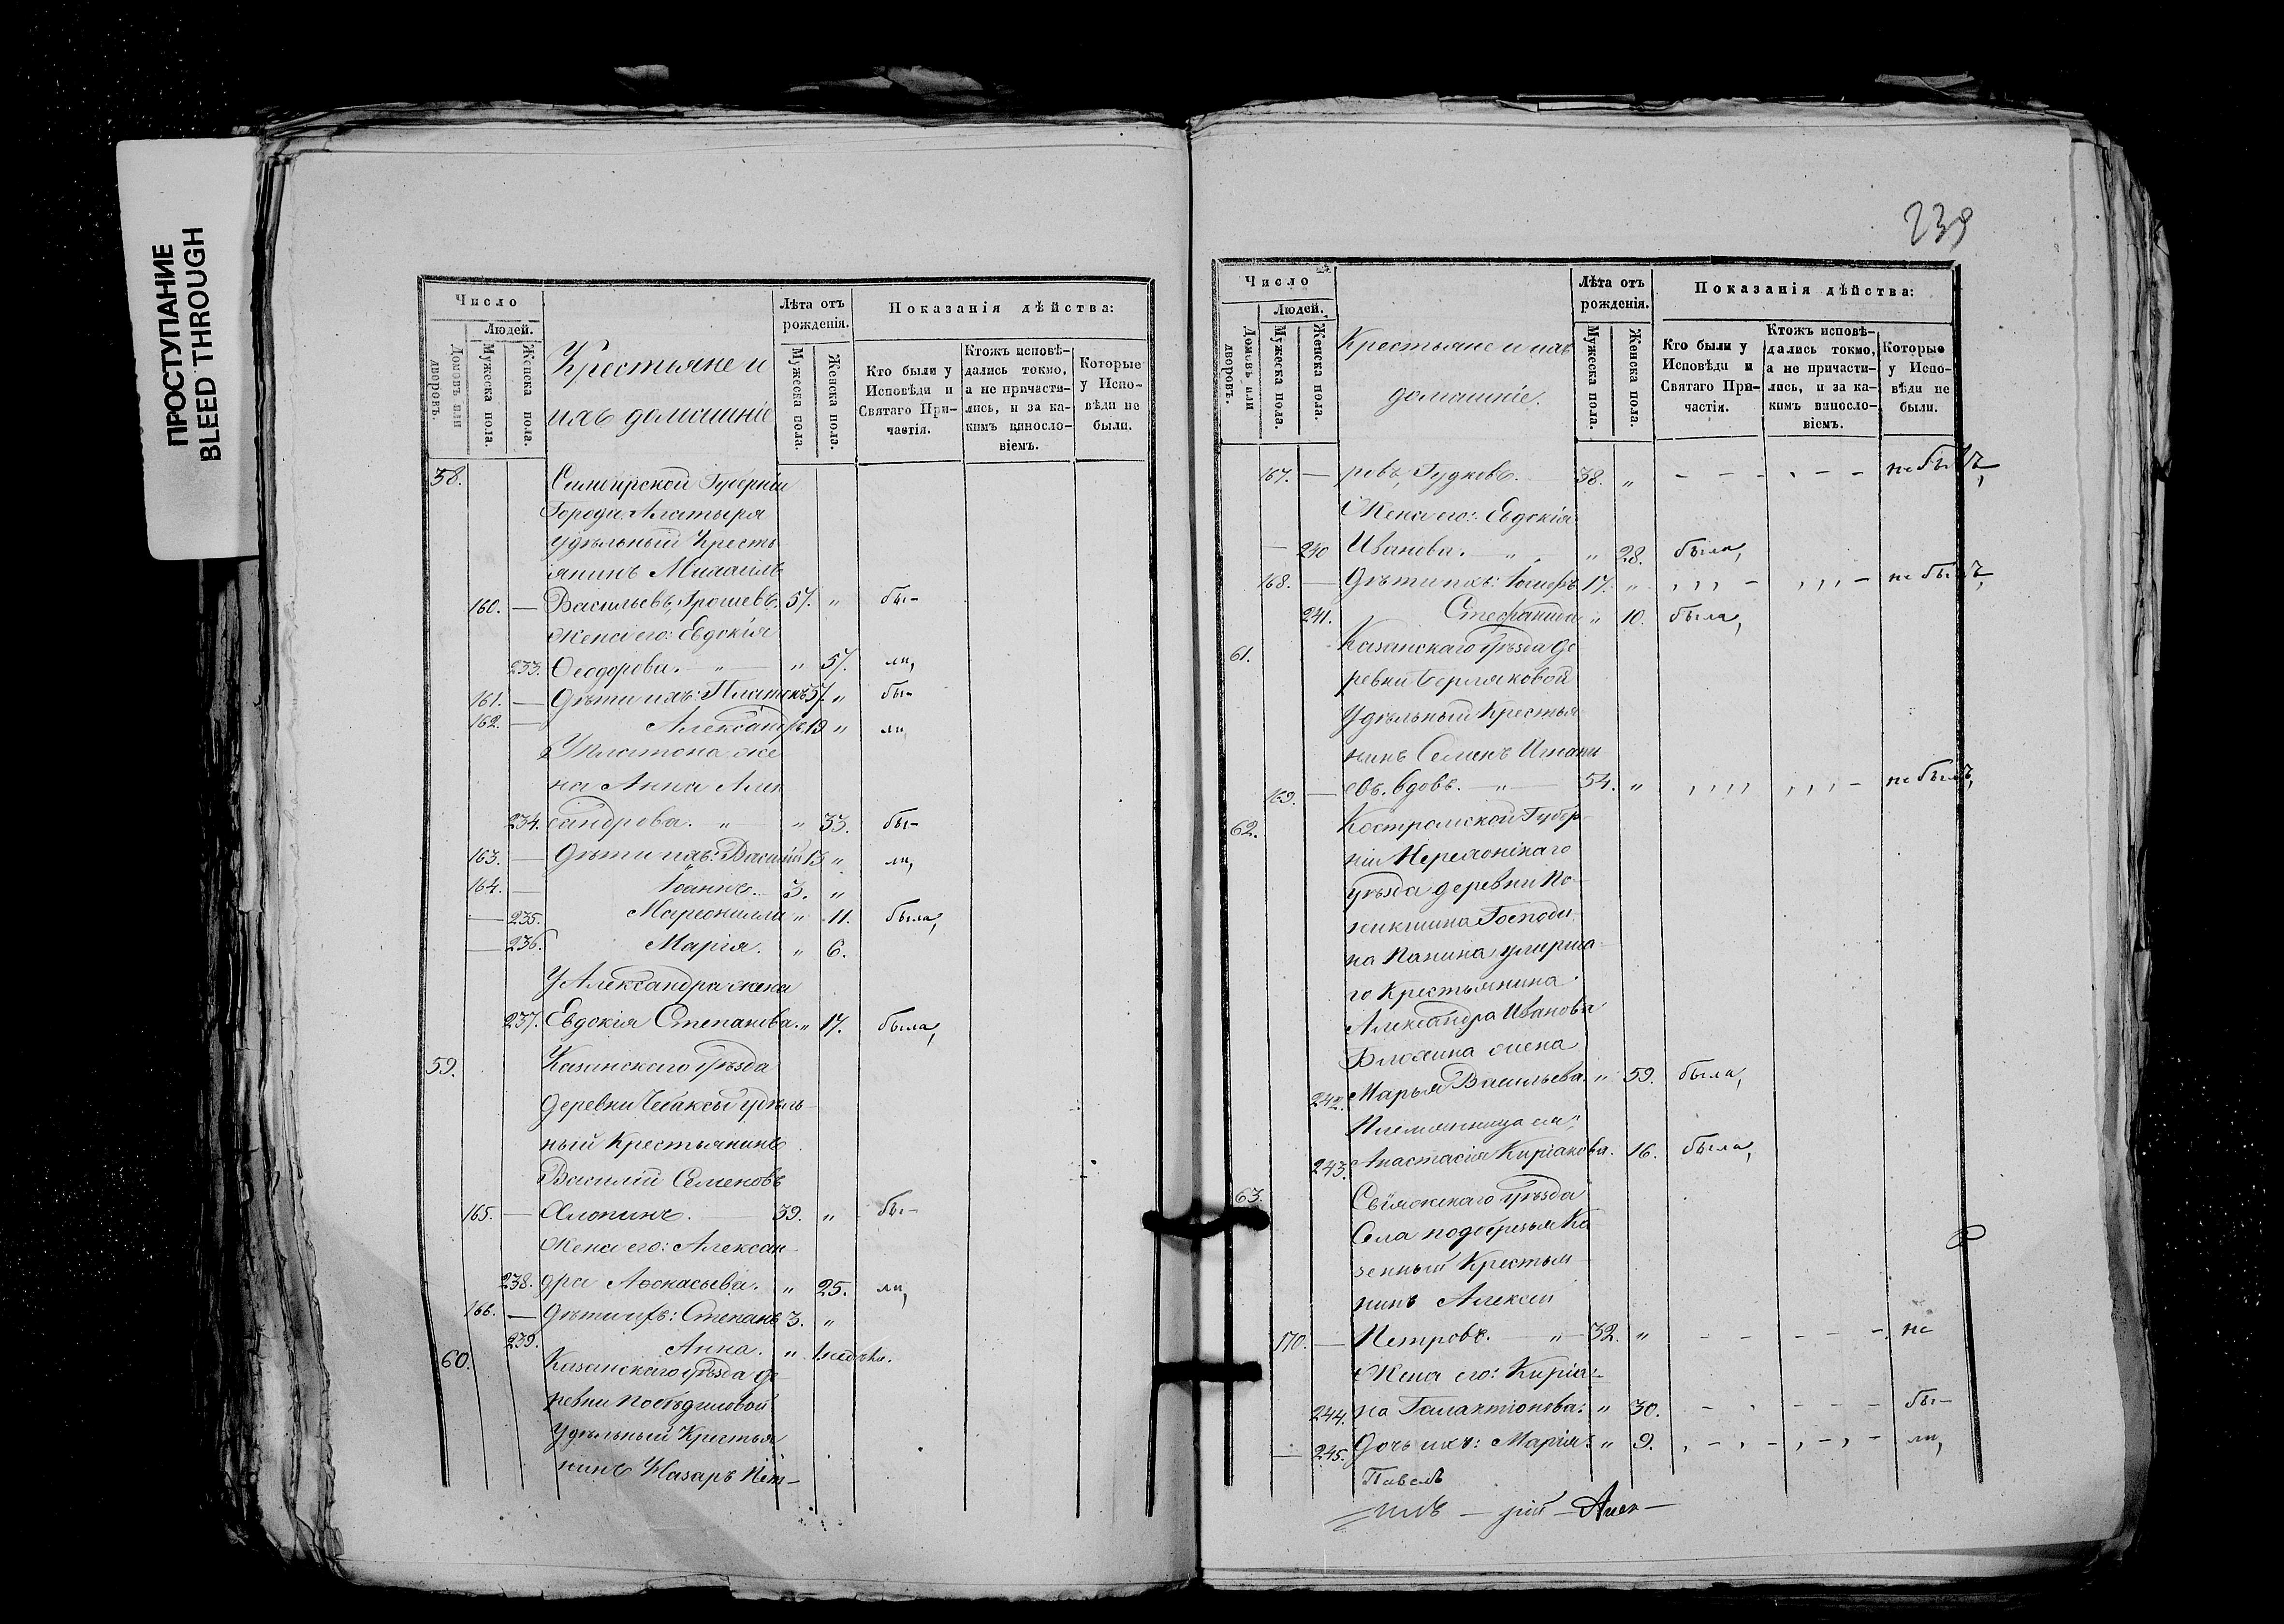 ПРОСТУПАНИЕ
BLEED THROUGH
Число
Людей.
Домовъ или дворовъ.
Мужеска пола.
Женска пола.
Крестьяне и
ихъ домашніе
Лѣта отъ рожденія.
Мужеска пола.
Женска пола.
Показанія дѣйства:
Кто были у Исповѣди и Святаго Причастія.
Ктожъ исповѣдались токмо, а не причастились, и за какимъ винословіемъ.
Которые у Исповѣди не были.
58. Симбирской Губерніи
Города Алатыря
Удѣльный Кресть
янинъ Михаилъ
160. — Васильевъ, Грошевъ. 57. " бы-
Жена его: Евдокія
233. Ѳеодорова. " — " 57. ли,
161. — Дѣти ихъ: Платонъ 37. " бы-
162. — Александръ 19 " ли
У Платона же
на Анна Алек
234. сандрова. " — " 33. бы-
163. — Дѣти ихъ: Василій 13 " ли,
164. — Іоаннъ. 3. "
— 235. " 11. была,
— 236. Марія. " 6.
У Александра жена
237. Евдокія Степанова. " 17. была,
59. Казанскаго Уѣзда
деревни Чебаксы удѣль
ный Крестьянинъ
Василій Семеновъ
165. — Хлопинъ. 39. " бы-
Жена его: Алексан
238. дра Аѳонасьева. " 25. ли,
166. — Дѣти ихъ: Степанъ 3. "
239. Анна. " 1 недѣли.
60. Казанскаго Уѣзда де
ревни
Удѣльный Крестья
нинъ Назаръ Пет-
239
Число
Людей.
Домовъ или дворовъ.
Мужеска пола.
Женска пола.
Крестьяне и ихъ
домашніе.
Лѣта отъ рожденія.
Мужеска пола.
Женска пола.
Показанія дѣйства:
Кто были у Исповѣди и Святаго Причастія.
Ктожъ исповѣдались токмо, а не причастились, и за какимъ винословіемъ.
Которые у Исповѣди не были.
167. — ровъ, Гудковъ. 38. " не былъ,
Жена его: Евдокія
— 240 Иванова. " " 28. была,
168. — Дѣти ихъ: Іосифъ 17. " не былъ,
241. Стефанида " 10. была,
61. Казанскаго Уѣзда де
ревни
Удѣльный Крестья
нинъ Семенъ Игнать
169. — евъ. вдовъ. " — 54. " не былъ,
62. Костромской Губер
ніи
Уѣзда деревни По
Господи
на Панина умерша
го Крестьянина
Александра Иванова
Блохина жена
242. Марья Васильева. " 59. была,
Племянница ея:
243. Анастасія Киріакова. 16. была,
63. Свіяжскаго Уѣзда
Села подберезья Ка
зенный Крестья
нинъ Алексѣй
170. — Петровъ. — " — 32. " не
Жена его: Киріа-
244. на Галактіонова: " 30. бы-
— 245. Дочь ихъ: Марія: " 9. ли,
Павелъ